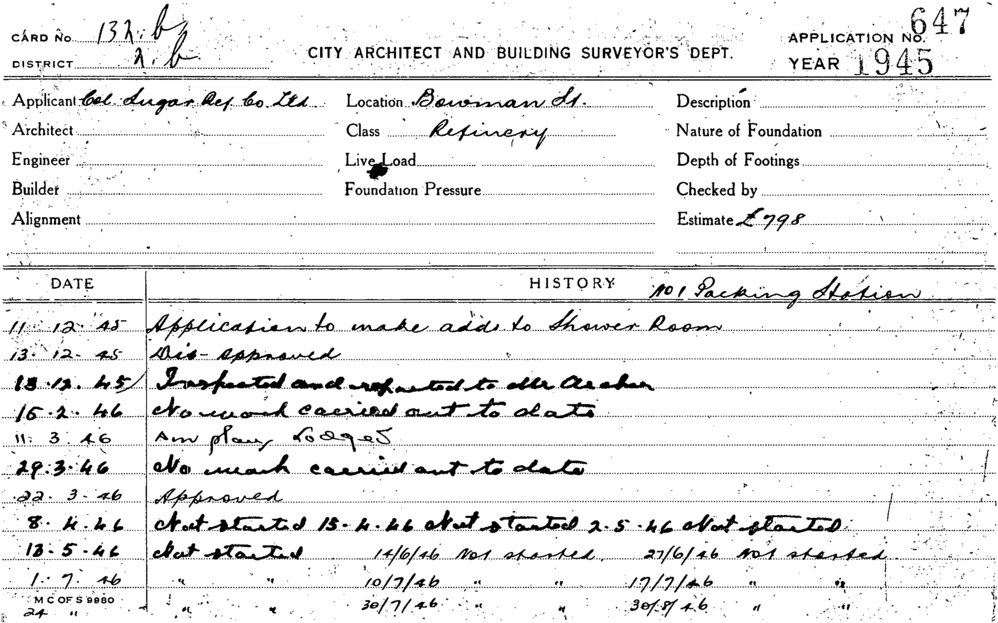 CARD No 132.b
DISTRICT 2.b.
CITY ARCHITECT AND BUILDING SURVEYOR'S DEPT.
APPLICATION NO. 647
YEAR 1945
Applicant Col. Sugar Ref. Co. Ltd Location Bowman St. Description
Architect Class Refinery Nature of Foundation
Engineer Live Load Depth of Footings
Builder Foundation Pressure Checked by
Alignment Estimate £798
DATE HISTORY No 1 Packing Station
11 . 12 . 45 Application to make adds to Shower Room
13 . 12 . 45 Dis-approved
13 . 12 . 45 Inspected and reported to Mr Archer
15 . 2 . 46 No work carried out to date
11 . 3 . 46 Am plans Lodged
29 . 3 . 46 No work carried out to date
22 . 3 . 46 Approved
8 . 4 . 46 Not started 15 . 4 . 46 Not started 2 . 5 . 46 Not started
13 . 5 . 46 Not started 14/6/46 Not started 27/6/46 Not started
1 . 7 . 46 " " 10/7/46 " " 17/7/46 " "
M C OF S 9980
24 " " " 30/7/46 " " 30/8/46 " "